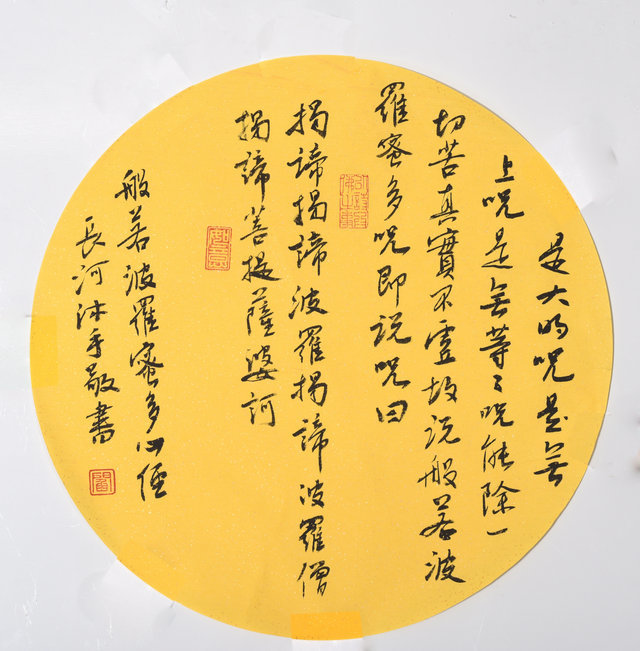 是大明咒是无
上咒是无等々咒能除一
切苦真實不虚故说般若波
羅蜜多咒即説咒曰
揭諦揭諦波羅揭諦波羅僧
揭諦菩提薩婆訶
般若波羅蜜多心經
長河沐手敬書